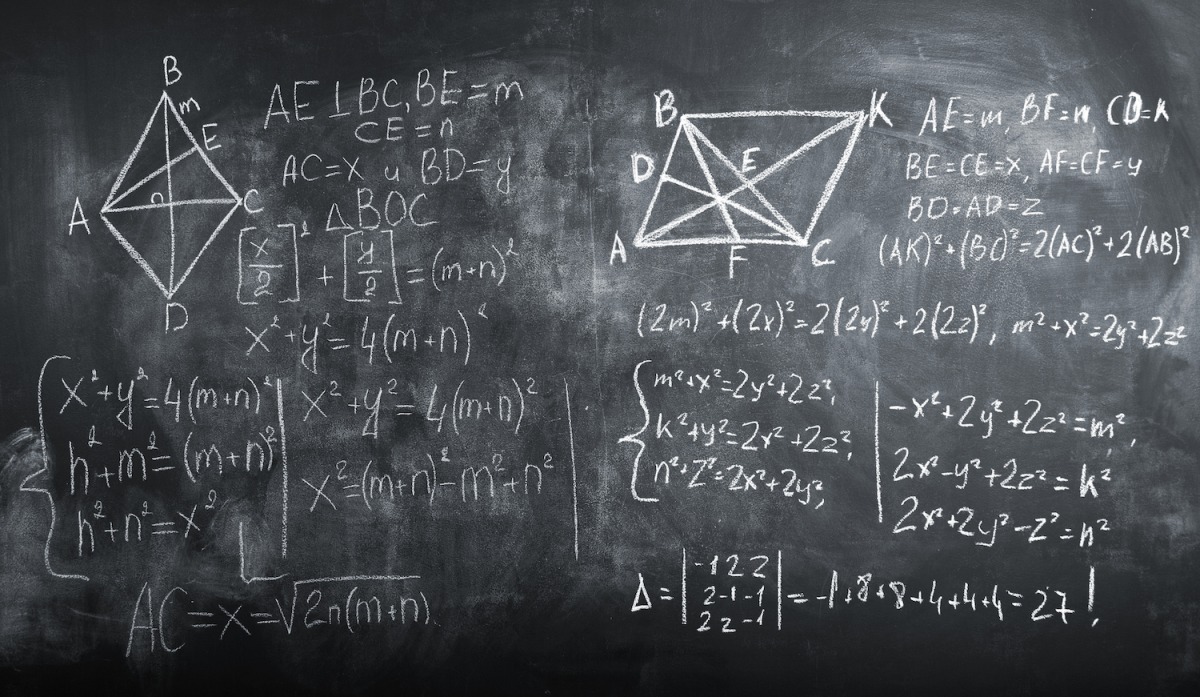 B
m
E
A
C
D
AE⊥BC, BE=m
CE=n
AC=x и BD=y
△BOC
[x/2]²+[y/2]=(m+n)²
x²+y²=4(m+n)²
x²+y²=4(m+n)²
h²+m²=(m+n)²
h²+n²=x²
x²+y²=4(m+n)²
x²=(m+n)²-m²+n²
AC=x=√2n(m+n)
B
K
D
E
A
F
C
AE=m, BF=n, CD=k
BE=CE=x, AF=CF=y
BD=AD=z
(AK)²+(BC)²=2(AC)²+2(AB)²
(2m)²+(2x)²=2(2y)²+2(2z)², m²+x²=2y²+2z²
m²+x²=2y²+2z²,
k²+y²=2x²+2z²,
n²+z²=2x²+2y²,
-x²+2y²+2z²=m²,
2x²-y²+2z²=k²
2x²+2y²-z²=n²
Δ=|-1 2 2
2 -1 -1
2 2 -1|=-1+8+8+4+4+4=27!